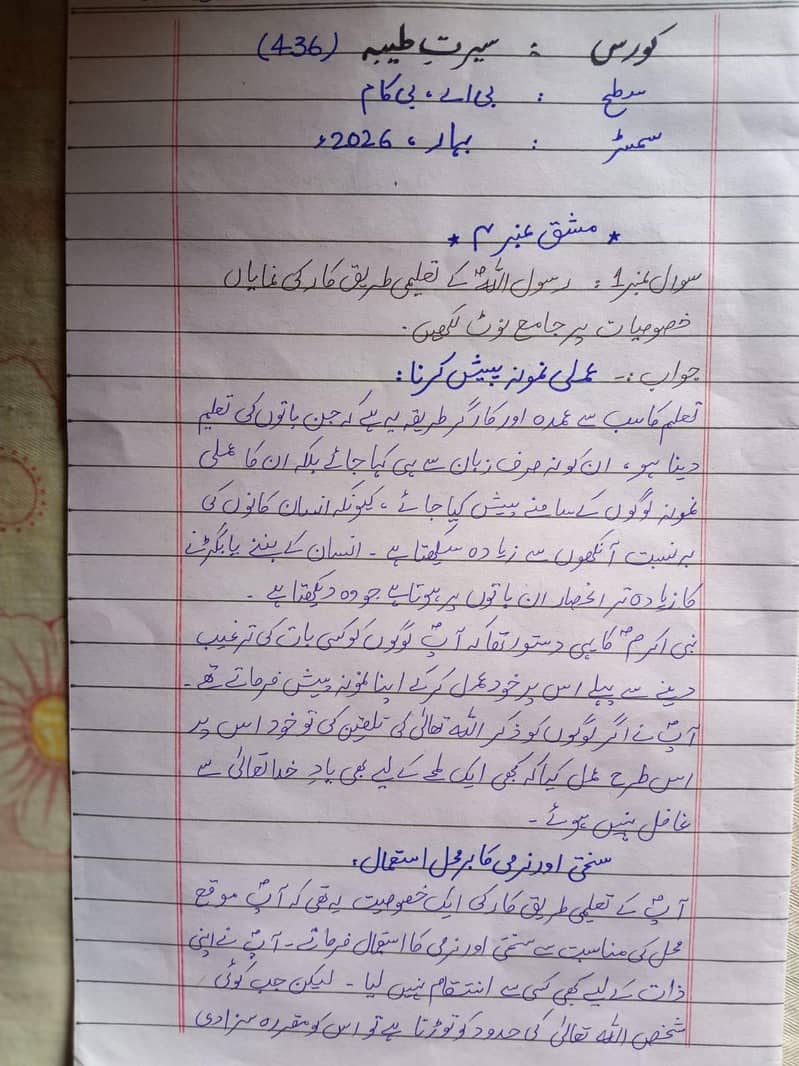 کورس : سیرتِ طیبہ (436)
سطح : بی اے ، بی کام
سمسٹر : بہار ، 2026ء
* مشق نمبر ۲ *
سوال نمبر 1 : رسول اللہؐ کے تعلیمی طریق کار کی نمایاں
خصوصیات پر جامع نوٹ لکھیں۔
جواب :- عملی نمونہ پیش کرنا :
تعلم کا سب سے عمدہ اور کارگر طریقہ یہ ہے کہ جن باتوں کی تعلیم
دینا ہو ، ان کو نہ صرف زبان سے ہی کہا جائے بلکہ ان کا عملی
نمونہ لوگوں کے سامنے پیش کیا جائے ، کیونکہ انسان کانوں کی
بہ نسبت آنکھوں سے زیادہ سیکھتا ہے ۔ انسان کے بننے یا بگڑنے
کا زیادہ تر انحصار ان باتوں پر ہوتا ہے جو وہ دیکھتا ہے ۔
نبی اکرمؐ کا یہی دستور تھا کہ آپؐ لوگوں کو کسی بات کی ترغیب
دینے سے پہلے اس پر خود عمل کر کے اپنا نمونہ پیش فرماتے تھے ۔
آپؐ نے اگر لوگوں کو ذکر اللہ تعالیٰ کی تلقین کی تو خود اس پر
اس طرح عمل کیا کہ کبھی ایک لمحے کے لیے بھی یادِ خدا تعالیٰ سے
غافل نہیں ہوئے ۔
سختی اور نرمی کا بر محل استعمال :
آپؐ کے تعلیمی طریق کار کی ایک خصوصیت یہ تھی کہ آپؐ موقع
محل کی مناسبت سے سختی اور نرمی کا استعمال فرماتے ۔ آپؐ نے اپنی
ذات کے لیے کبھی کسی سے انتقام نہیں لیا ۔ لیکن جب کوئی
شخص اللہ تعالیٰ کی حدود کو توڑتا ہے تو اس کو مقررہ سزا دی